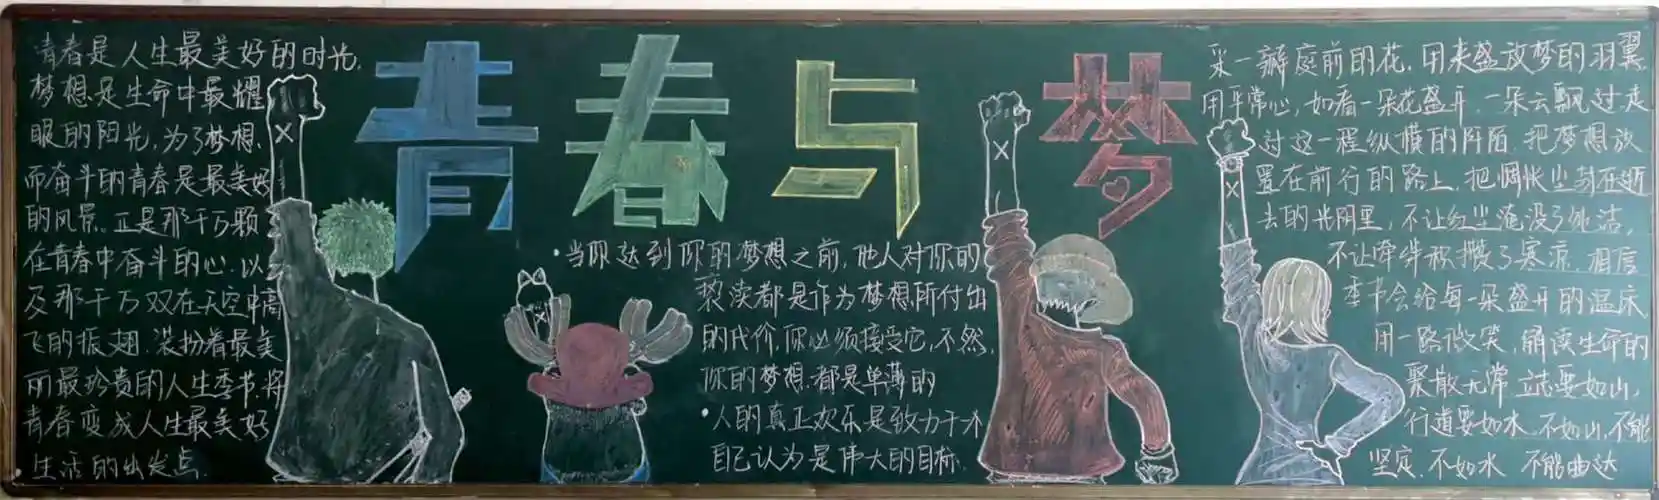 青春与梦
青春是人生最美好的时光,
梦想是生命中最耀
眼的阳光,为了梦想,
而奋斗的青春是最美好
的风景。正是那千万颗
在青春中奋斗的心,以
及那千万双在天空中高
飞的振翅,装扮着最美
丽最珍贵的人生季节,将
青春变成人生最美好
生活的出发点.
·当你达到你的梦想之前,他人对你的
亵渎都是作为梦想所付出
的代价,你必须接受它,不然,
你的梦想,都是单薄的
·人的真正欢乐是致力于一个
自己认为是伟大的目标.
采一瓣庭前的花,用来盛放梦的羽翼
用平常心,如看一朵花盛开,一朵云飘过,走
过这一程纵横的阡陌,把梦想放
置在前行的路上,把惆怅尘封在逝
去的光阴里,不让红尘淹没了纯洁,
不让牵绊积攒了寒凉,相信
季节会给每一朵盛开的温床
用一路微笑,解读生命的
聚散无常,志要如山,
行道要如水,不如山,不能
坚定,不如水 不能曲达